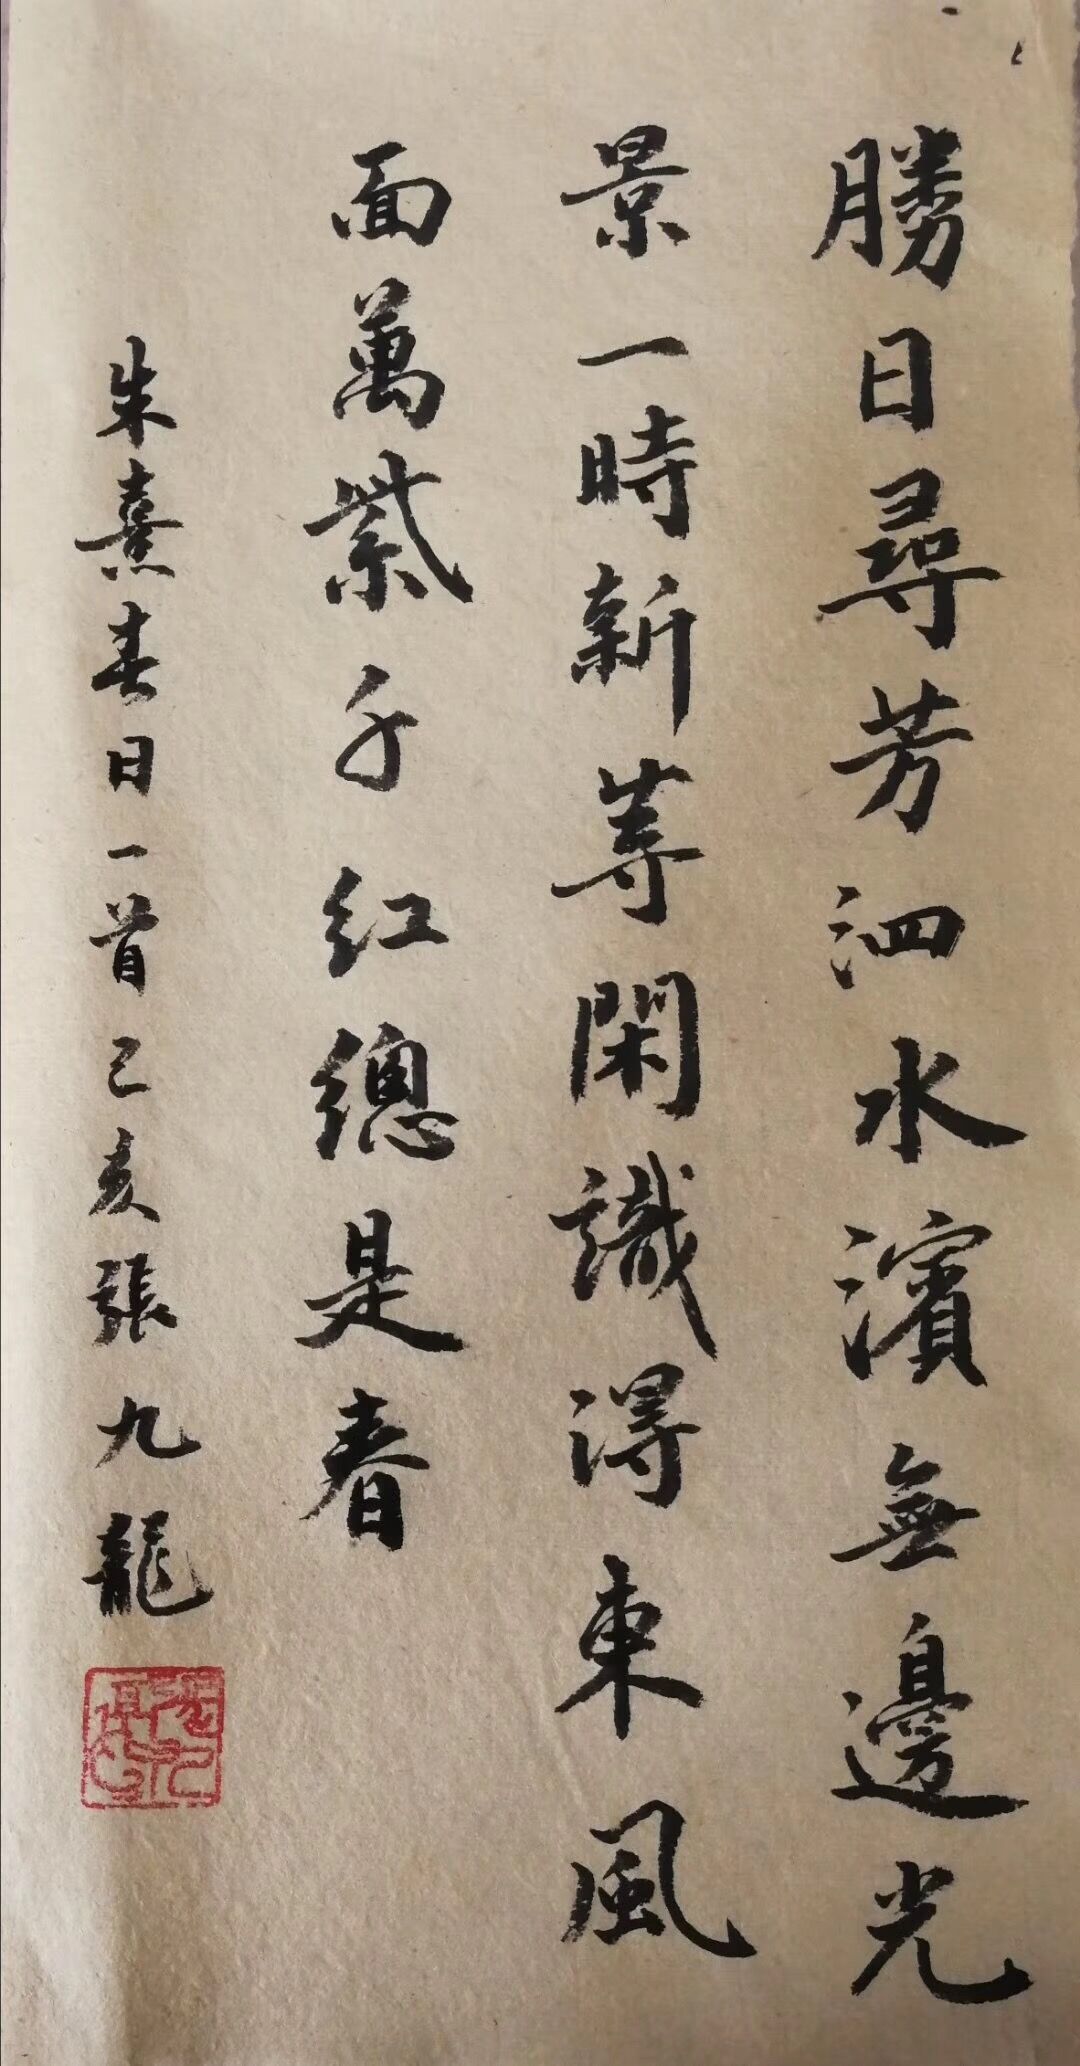 勝日尋芳泗水濱無邊光
景一時新等閑識得東風
面萬紫千紅總是春
朱熹春日一首己亥張九龍